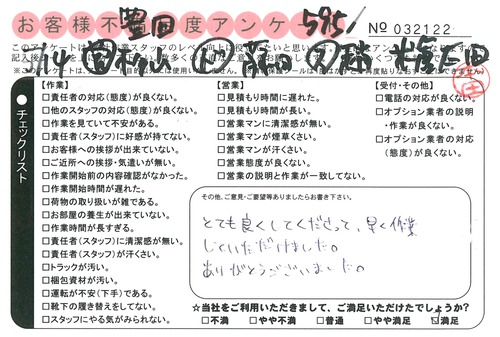 お客様不満度アンケ
豊田
5951
No 032122
【作業】
□責任者の対応(態度)が良くない。
□他のスタッフの対応(態度)が良くない。
□作業を見ていて不安がある。
□責任者(スタッフ)に好感が持てない。
□お客様への挨拶が出来ていない。
□ご近所への挨拶・気遣いが無い。
□作業開始前の内容確認がなかった。
□作業開始時間が遅れた。
□荷物の取り扱いが雑である。
□お部屋の養生が出来ていない。
□作業時間が長すぎる。
□責任者(スタッフ)に清潔感が無い。
□責任者(スタッフ)が汗くさい。
□トラックが汚い。
□梱包資材が汚い。
□運転が不安(下手)である。
□靴下の履き替えをしてない。
□スタッフにやる気がみられない。
【営業】
□見積もり時間に遅れた。
□見積もり時間が長い。
□営業マンに清潔感が無い。
□営業マンが煙草くさい。
□営業マンが汗くさい。
□営業態度が良くない。
□営業の説明と作業が一致してない。
【受付・その他】
□電話の対応が良くない。
□オプション業者の説明
・作業が良くない。
□オプション業者の対応
(態度)が良くない。
チェックリスト
その他、ご意見・ご要望等ありましたらお書き下さい。
とても良くしてくださって、早く作業
していただけました。
ありがとうございました。
☆当社をご利用いただきまして、ご満足いただけたでしょうか?
□不満 □やや不満 □普通 □やや満足 ☑満足